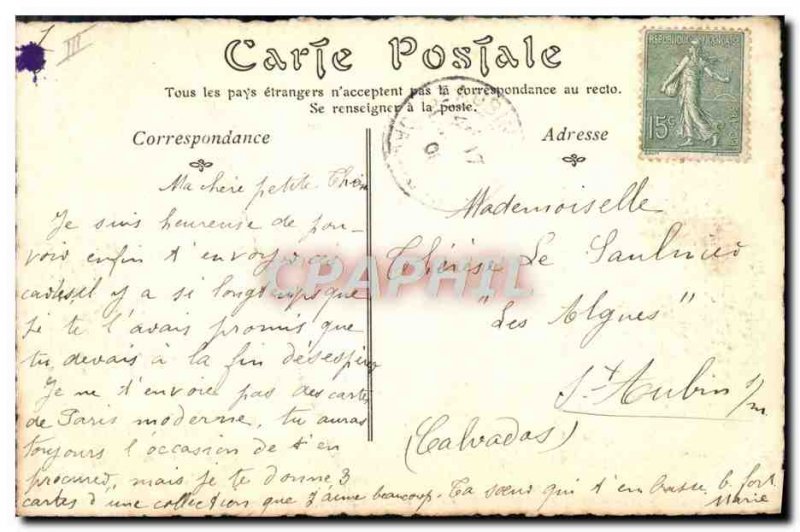 III
Carte Postale
Tous les pays étrangers n'acceptent pas la correspondance au recto.
Se renseigner à la poste.
Correspondance
Adresse
REPUBLIQUE FRANÇAISE
15c
POSTES
Ma chère petite Thérèse
Je suis heureuse de pou-
voir enfin t'envoyer ces
cartes il y a si longtemps que
je te l'avais promis que
tu devais à la fin désespérer
Je ne t'envoie pas des cartes
de Paris moderne, tu auras
toujours l'occasion de t'en
procurer, mais je te donne 3
cartes d'une collection que j'aime beaucoup. Ta sœur qui t'embrasse b. fort
Marie
Mademoiselle
Thérèse Le Saulnier
"Les Algues"
St Aubin s/m
(Calvados)
CPAPHIL